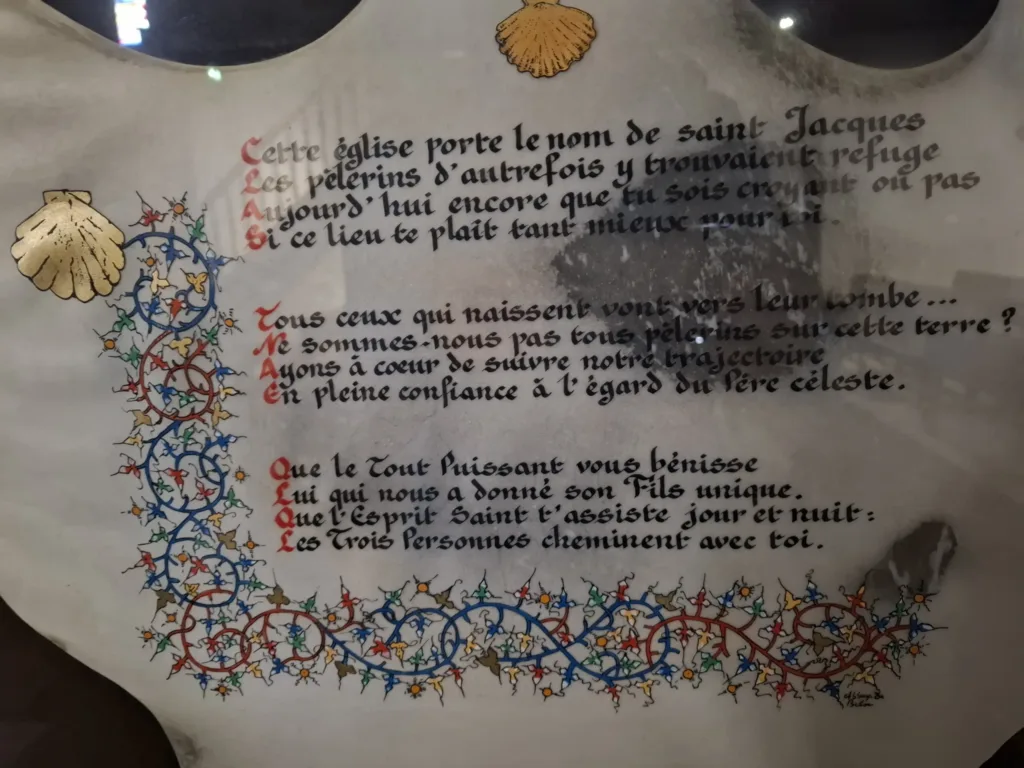 Cette église porte le nom de saint Jacques
Les pèlerins d'autrefois y trouvaient refuge
Aujourd'hui encore que tu sois croyant ou pas
Si ce lieu te plaît tant mieux pour toi.
Tous ceux qui naissent vont vers leur tombe...
Ne sommes-nous pas tous pèlerins sur cette terre ?
Ayons à coeur de suivre notre trajectoire
En pleine confiance à l'égard du Père céleste.
Que le Tout Puissant vous bénisse
Lui qui nous a donné son Fils unique.
Que l'Esprit Saint t'assiste jour et nuit :
Les Trois Personnes cheminent avec toi.